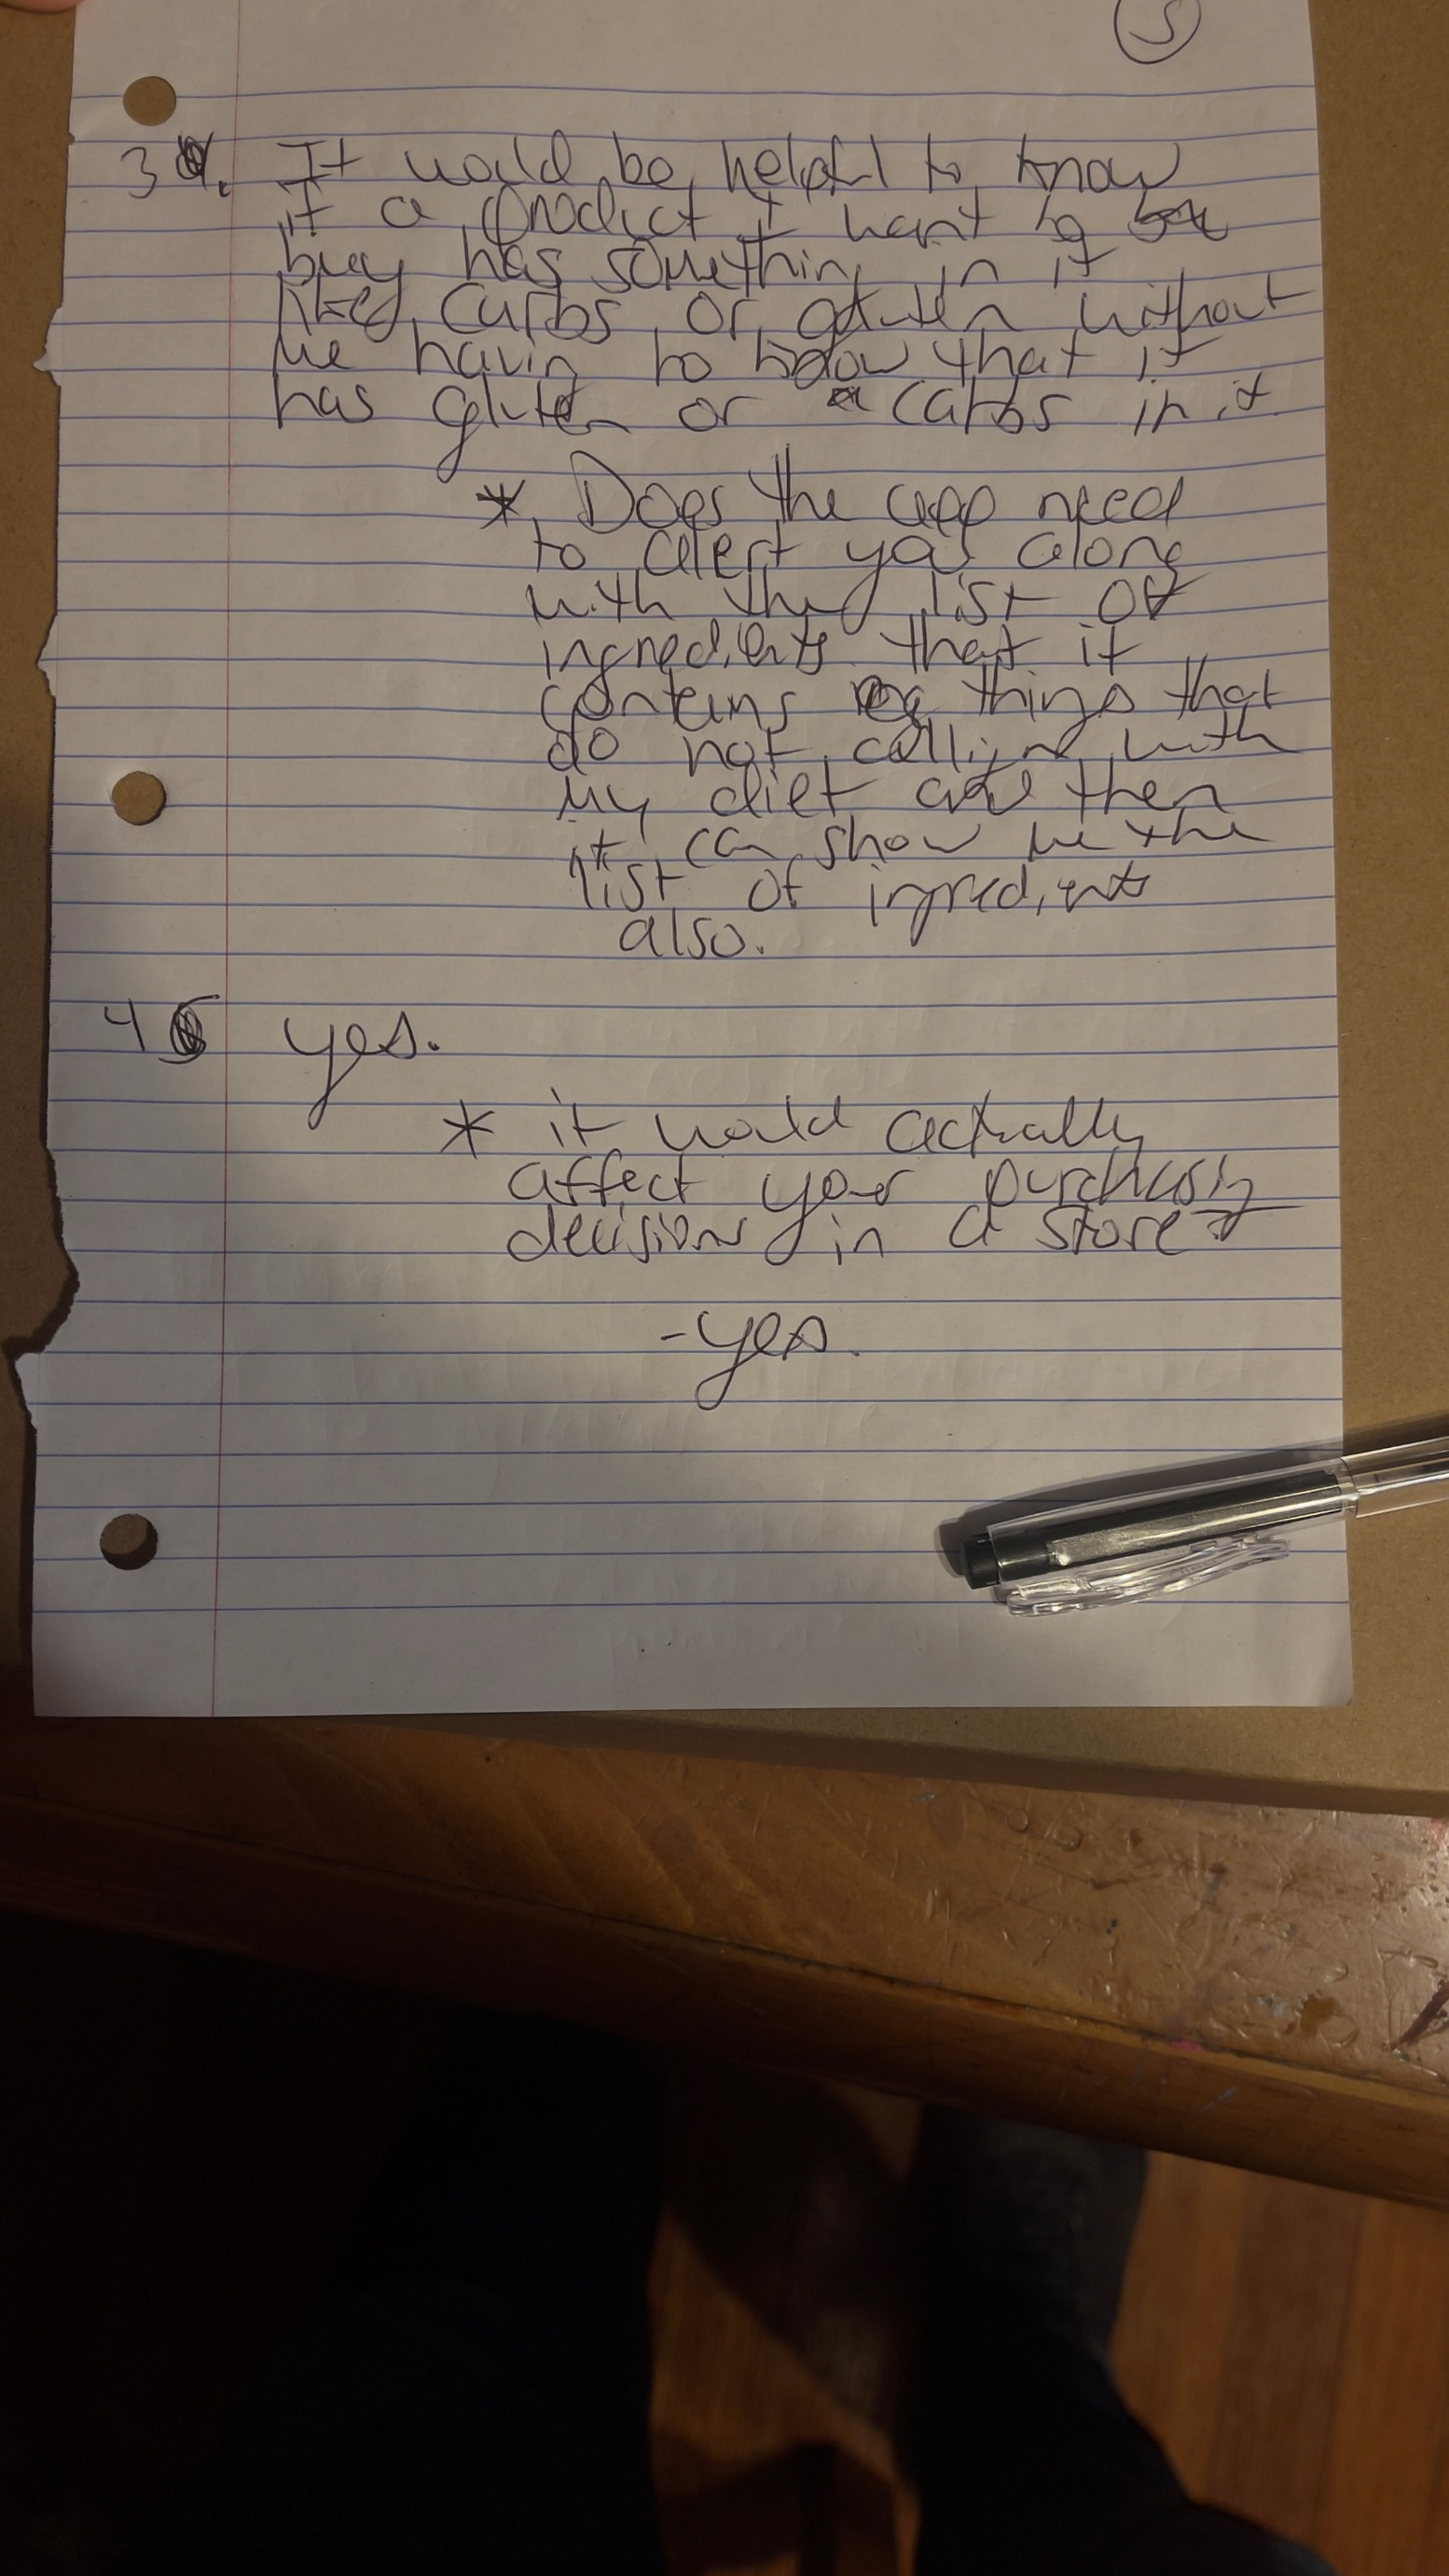 5
3. It would be helpful to know
if a product I want to
buy has something in it
like carbs or gluten without
me having to know that it
has gluten or carbs in it.
* Does the app need
to alert you along
with the list of
ingredients that it
contains things that
do not allign with
my diet and then
it can show me the
list of ingredients
also.
4 yes.
* it would actually
affect your purchasing
decisions in a store?
- yes.